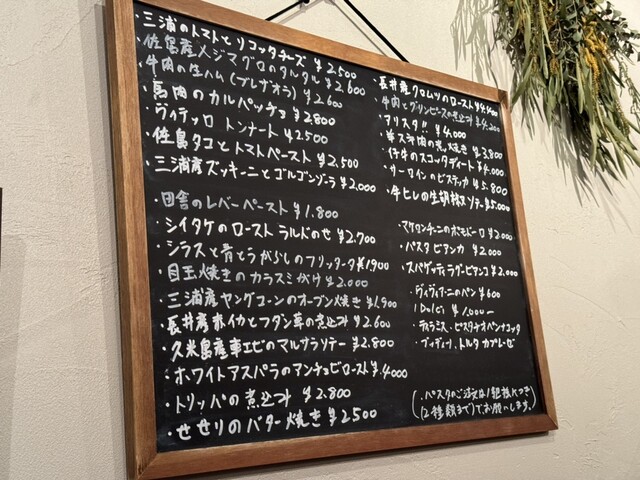 ・三浦のトマトとリコッタチーズ ¥2,500
・佐島産メジマグロのタルタル ¥2,600
・牛肉の生ハム(ブレザオラ) ¥2,600
・馬肉のカルパッチョ ¥2,800
・ヴィテッロ トンナート ¥2,500
・佐島タコとトマトペースト ¥2,500
・三浦産ズッキーニとゴルゴンゾーラ ¥2,000
・田舎のレバーペースト ¥1,800
・シイタケのロースト ラルドのせ ¥2,700
・シラスと青とうがらしのフリッタータ ¥1,900
・目玉焼きのカラスミがけ ¥2,000
・三浦産ヤングコーンのオーブン焼き ¥1,900
・長井産赤イカとフダン草の煮込み ¥2,600
・久米島産車エビのマルサラソテー ¥2,800
・ホワイトアスパラのアンチョビロースト ¥4,000
・トリッパの煮込み ¥2,800
・せせりのバター焼き ¥2,500
・長井産クロムツのロースト ¥4,400
・牛肉とグリンピースの煮込み ¥4,200
・アリスタ!! ¥4,000
焼き ¥3,800
・仔牛のスコッタディート ¥4,000
・サーロインのビステッカ ¥5,800
・牛ヒレの生胡椒ソテー ¥5,000
・マケロンチーニのポモドーロ ¥2,000
・パスタ ビアンカ ¥2,000
・スパゲッティ ラグービアンコ ¥2,000
・ヴィヴィアーニのパン ¥600
(Dolci) ¥1,000 ー
・ティラミス・ピスタチオパンナコッタ
・ブディーノ、トルタ カプレーゼ
(・パスタのご注文は1組様につき
(2種類まで)でお願いします。)